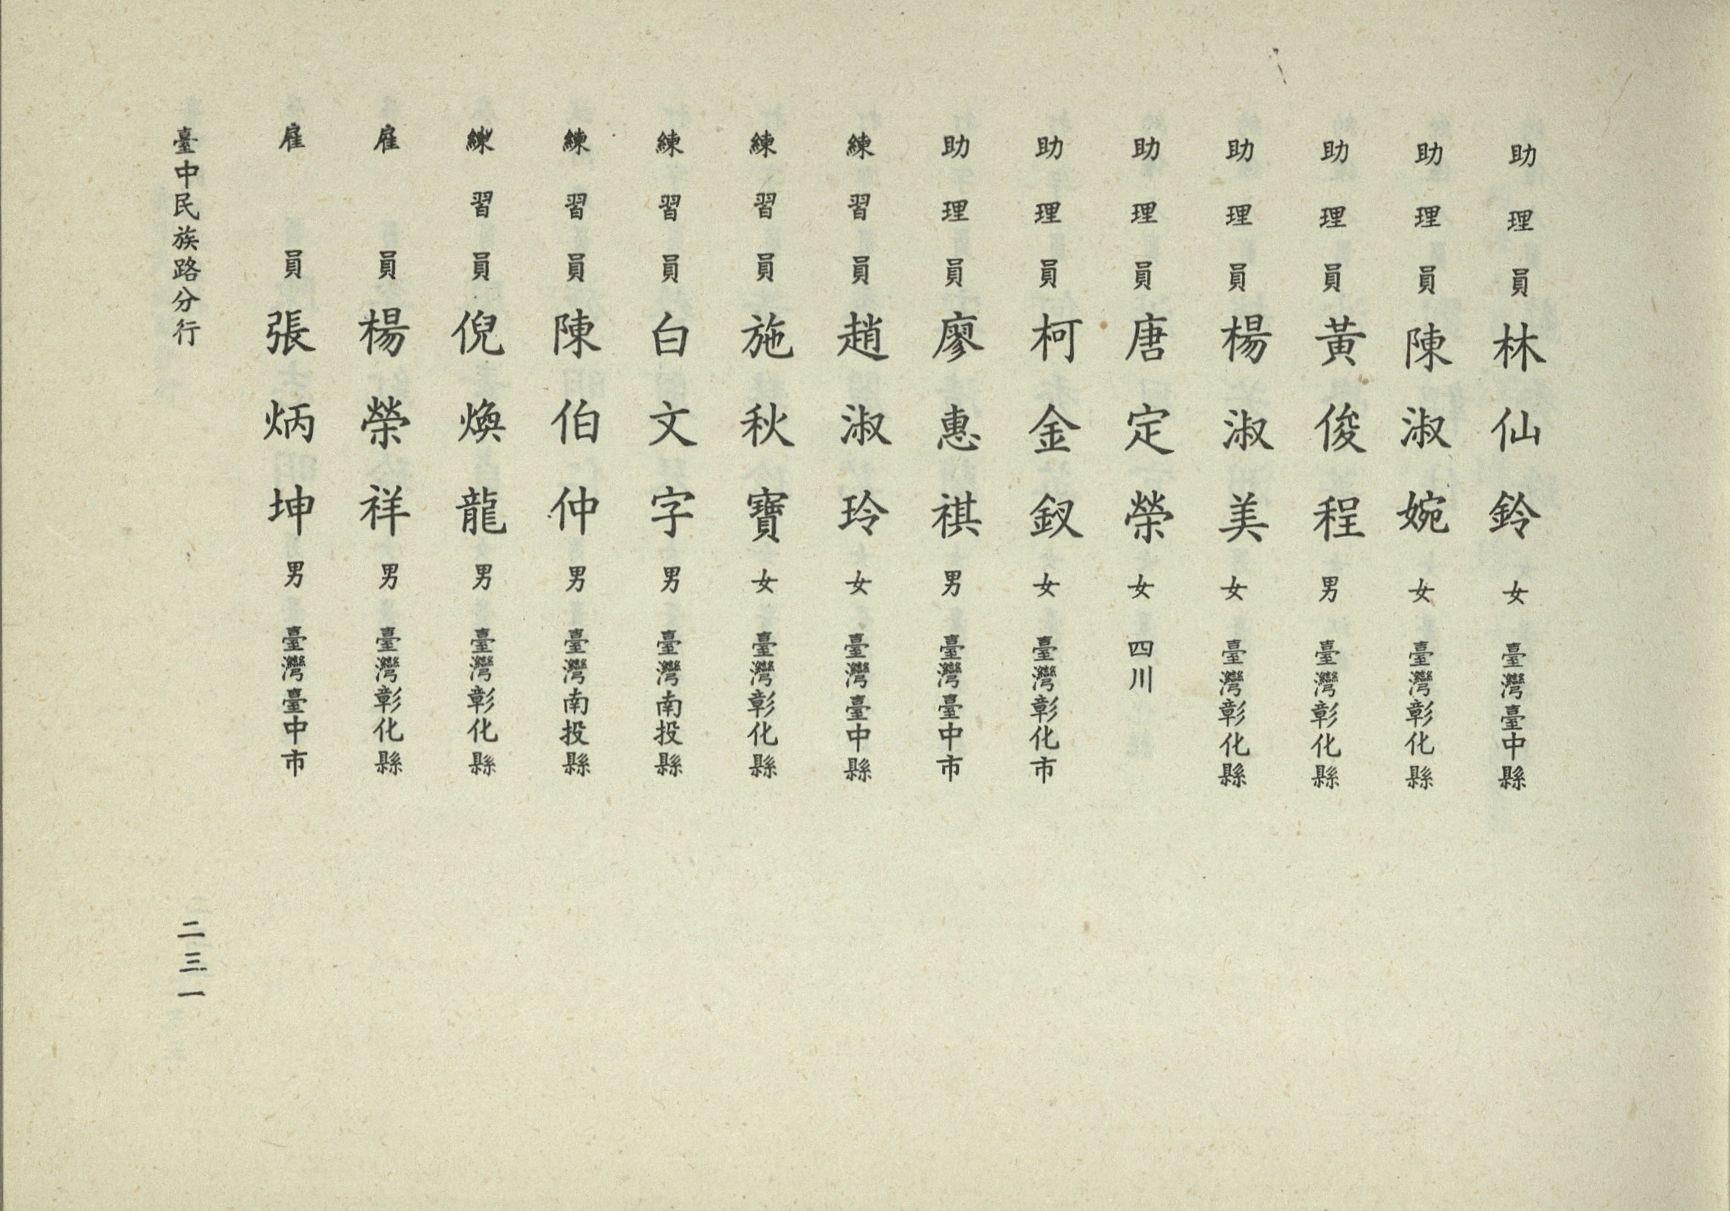 助理員林仙鈴女臺灣臺中縣
助理員陳淑婉女臺灣彰化縣
助理員黃俊程男臺灣彰化縣
助理員楊淑美女臺灣彰化縣
助理員唐定榮女四川
助理員柯金釵女臺灣彰化市
助理員廖惠祺男臺灣臺中市
練習員趙淑玲女臺灣臺中縣
練習員施秋寶女臺灣彰化縣
練習員白文字男臺灣南投縣
練習員陳伯仲男臺灣南投縣
練習員倪煥龍男臺灣彰化縣
雇員楊榮祥男臺灣彰化縣
雇員張炳坤男臺灣臺中市
臺中民族路分行
二三一